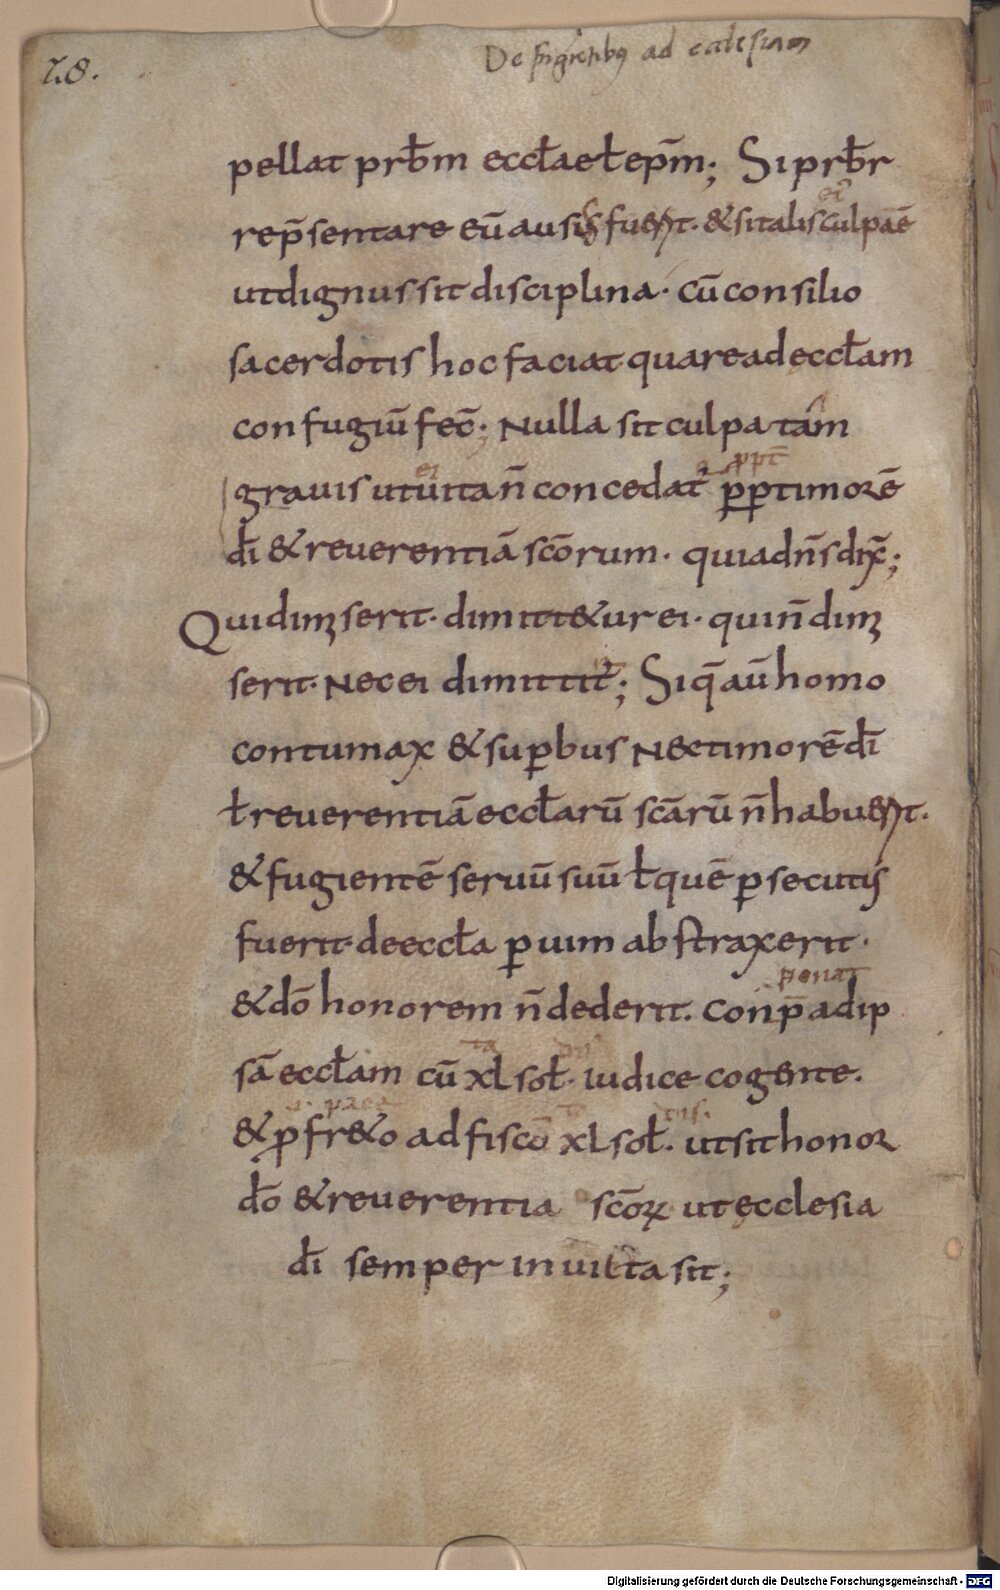 28.
De fugientibus ad ecclesiam
pellat prƀm eccƚae ƚ ep̄m; Si prƀr
rep̄sentare eū ausus fuerit. & si talis culpa ē
ut dignus sit disciplina. cū consilio
sacerdotis hoc faciat quare ad eccƚam
confugiū fec̄; Nulla sit culpa tam
ei ppt̄
grauis ut uita n̄ concedat' ꝓpt timorē
dī & reuerentiā scōrum. quia dn̄s dix̄;
Qui dimiserit. dimittetur ei. qui n̄ dimi
serit. Nec ei dimittit'; Si q̄ aū homo
contumax & suꝑbus Nec timorē dī
ƚ reuerentiā eccƚarū scārū n̄ habuerit.
& fugientē seruū suū ƚ quē ꝑsecutus
fuerit de eccƚa ꝑ uim abstraxerit.
& dō honorem n̄ dederit. conp̄ ad ip
sā eccƚam cū xl soƚ. iudice cogente.
& ꝓ fredo ad fiscō xl soƚ. ut sit honor
dō & reuerentia scōꝝ ut ecclesia
dī semper inuicta sit;
Digitalisierung gefördert durch die Deutsche Forschungsgemeinschaft - DFG